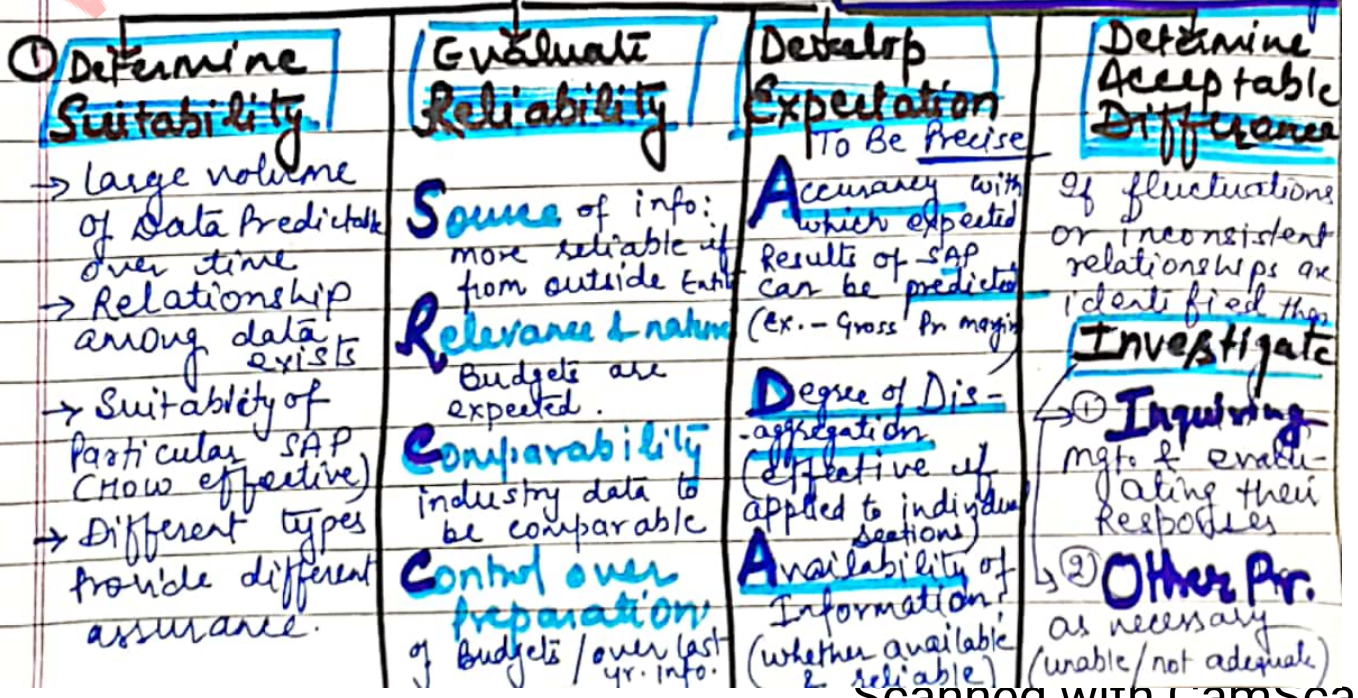 ① Determine
Suitability
→ Large volume
of Data Predictable
over time
→ Relationship
among data
exists
→ Suitability of
Particular SAP
(How effective)
→ Different types
Provide different
assurance.
Evaluate
Reliability
Source of info:
more reliable if
from outside Entity
Relevance & nature
Budgets are
expected.
Comparability
industry data to
be comparable
Control over
preparation
of Budgets / over last
yr. info.
Develop
Expectation
To Be Precise
Accuracy with
which expected
Results of SAP
can be predicted
(Ex. - Gross Pr margin)
Degree of Dis-
-aggregation
(effective if
applied to individual
sections)
Availability of
Information:
(whether available
& reliable)
Determine
Acceptable
Difference
If fluctuations
or inconsistent
relationships are
identified then
Investigate
① Inquiring
mgt. & evalu-
ating their
Responses
② Other Pr.
as necessary
(unable/not adequate)
Scanned with CamSca